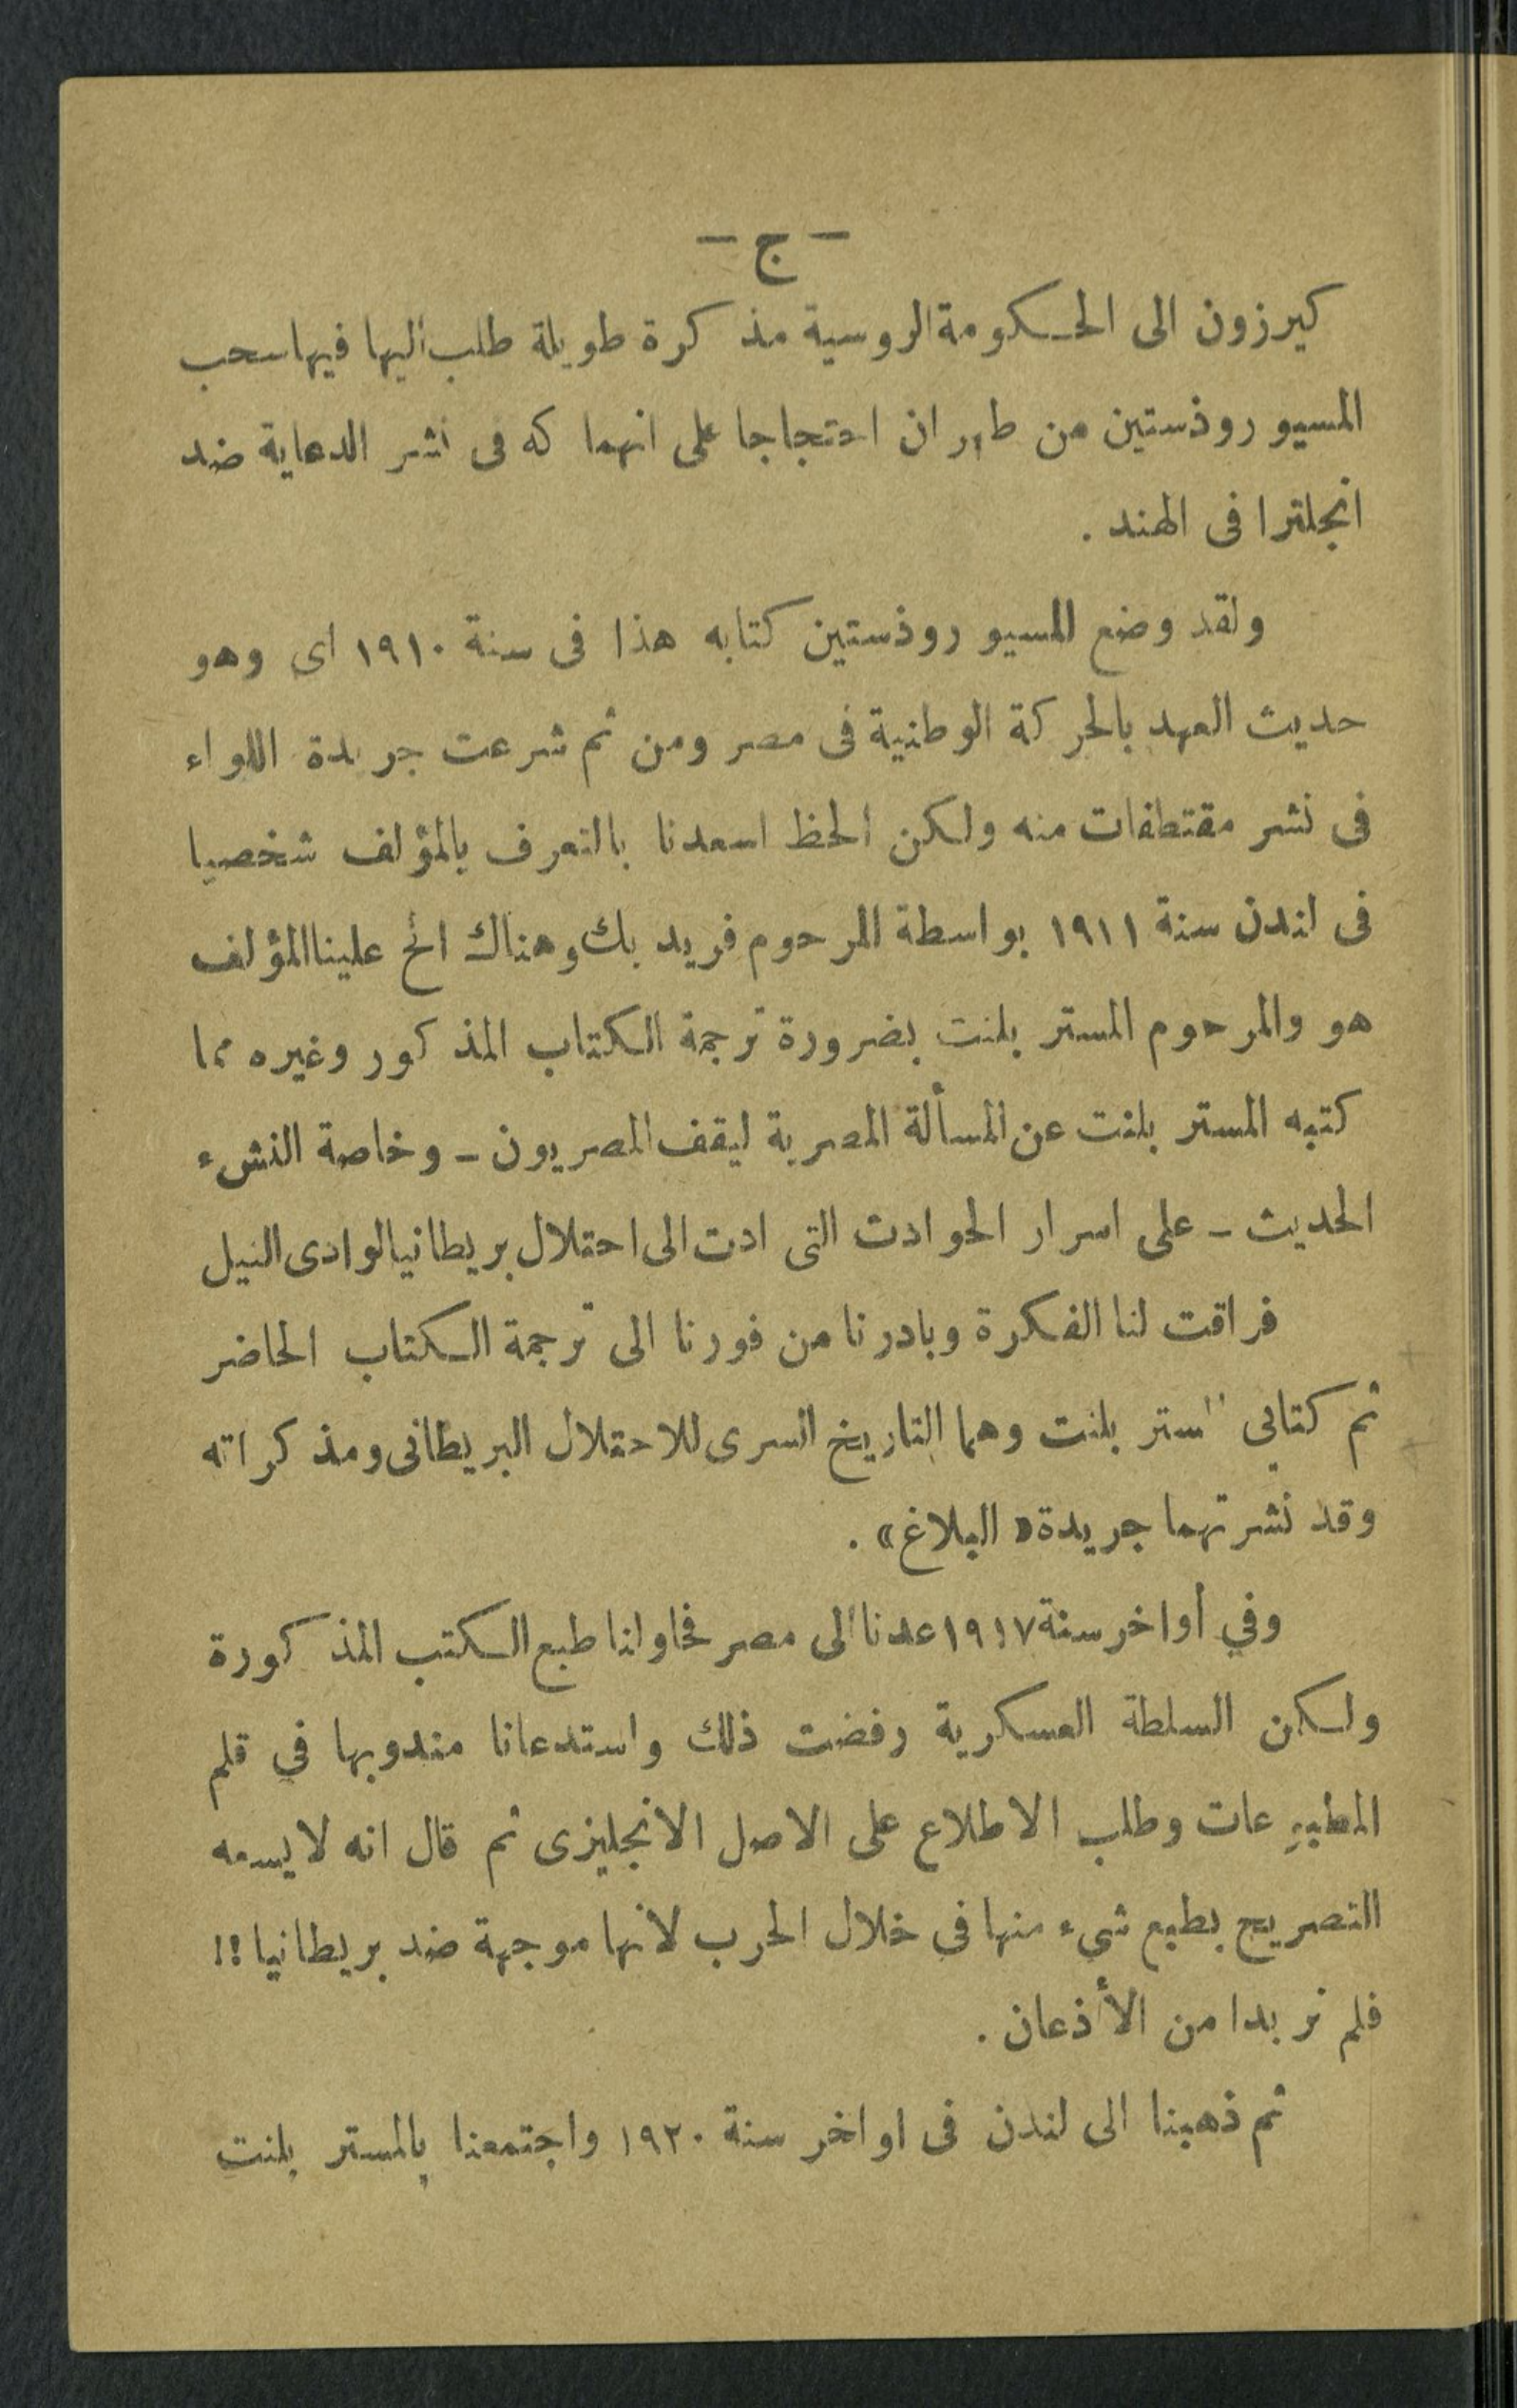 - ج -
كيرزون الى الحكومة الروسية مذكرة طويلة طلب اليها فيها سحب
المسيو روذستين من طهران احتجاجا على انهماكه فى نشر الدعاية ضد
انجلترا فى الهند .
ولقد وضع المسيو روذستين كتابه هذا فى سنة ١٩١٠ اى وهو
حديث العهد بالحركة الوطنية فى مصر ومن ثم شرعت جريدة اللواء
فى نشر مقتطفات منه ولكن الحظ اسعدنا بالتعرف بالمؤلف شخصيا
فى لندن سنة ١٩١١ بواسطة المرحوم فريد بك وهناك الح علينا المؤلف
هو والمرحوم المستر بلنت بضرورة ترجمة الكتاب المذكور وغيره مما
كتبه المستر بلنت عن المسألة المصرية ليقف المصريون - وخاصة النشء
الحديث - على اسرار الحوادث التى ادت الى احتلال بريطانيا لوادى النيل
فراقت لنا الفكرة وبادرنا من فورنا الى ترجمة الكتاب الحاضر
ثم كتابى المستر بلنت وهما التاريخ السرى للاحتلال البريطانى ومذكراته
وقد نشرتهما جريدة « البلاغ » .
وفي أواخر سنة ١٩١٧ عدنا الى مصر فحاولنا طبع الكتب المذكورة
ولكن السلطة العسكرية رفضت ذلك واستدعانا مندوبها في قلم
المطبوعات وطلب الاطلاع على الاصل الانجليزى ثم قال انه لا يسعه
التصريح بطبع شيء منها فى خلال الحرب لأنها موجهة ضد بريطانيا !!
فلم نر بدا من الأذعان .
ثم ذهبنا الى لندن فى اواخر سنة ١٩٢٠ واجتمعنا بالمستر بلنت